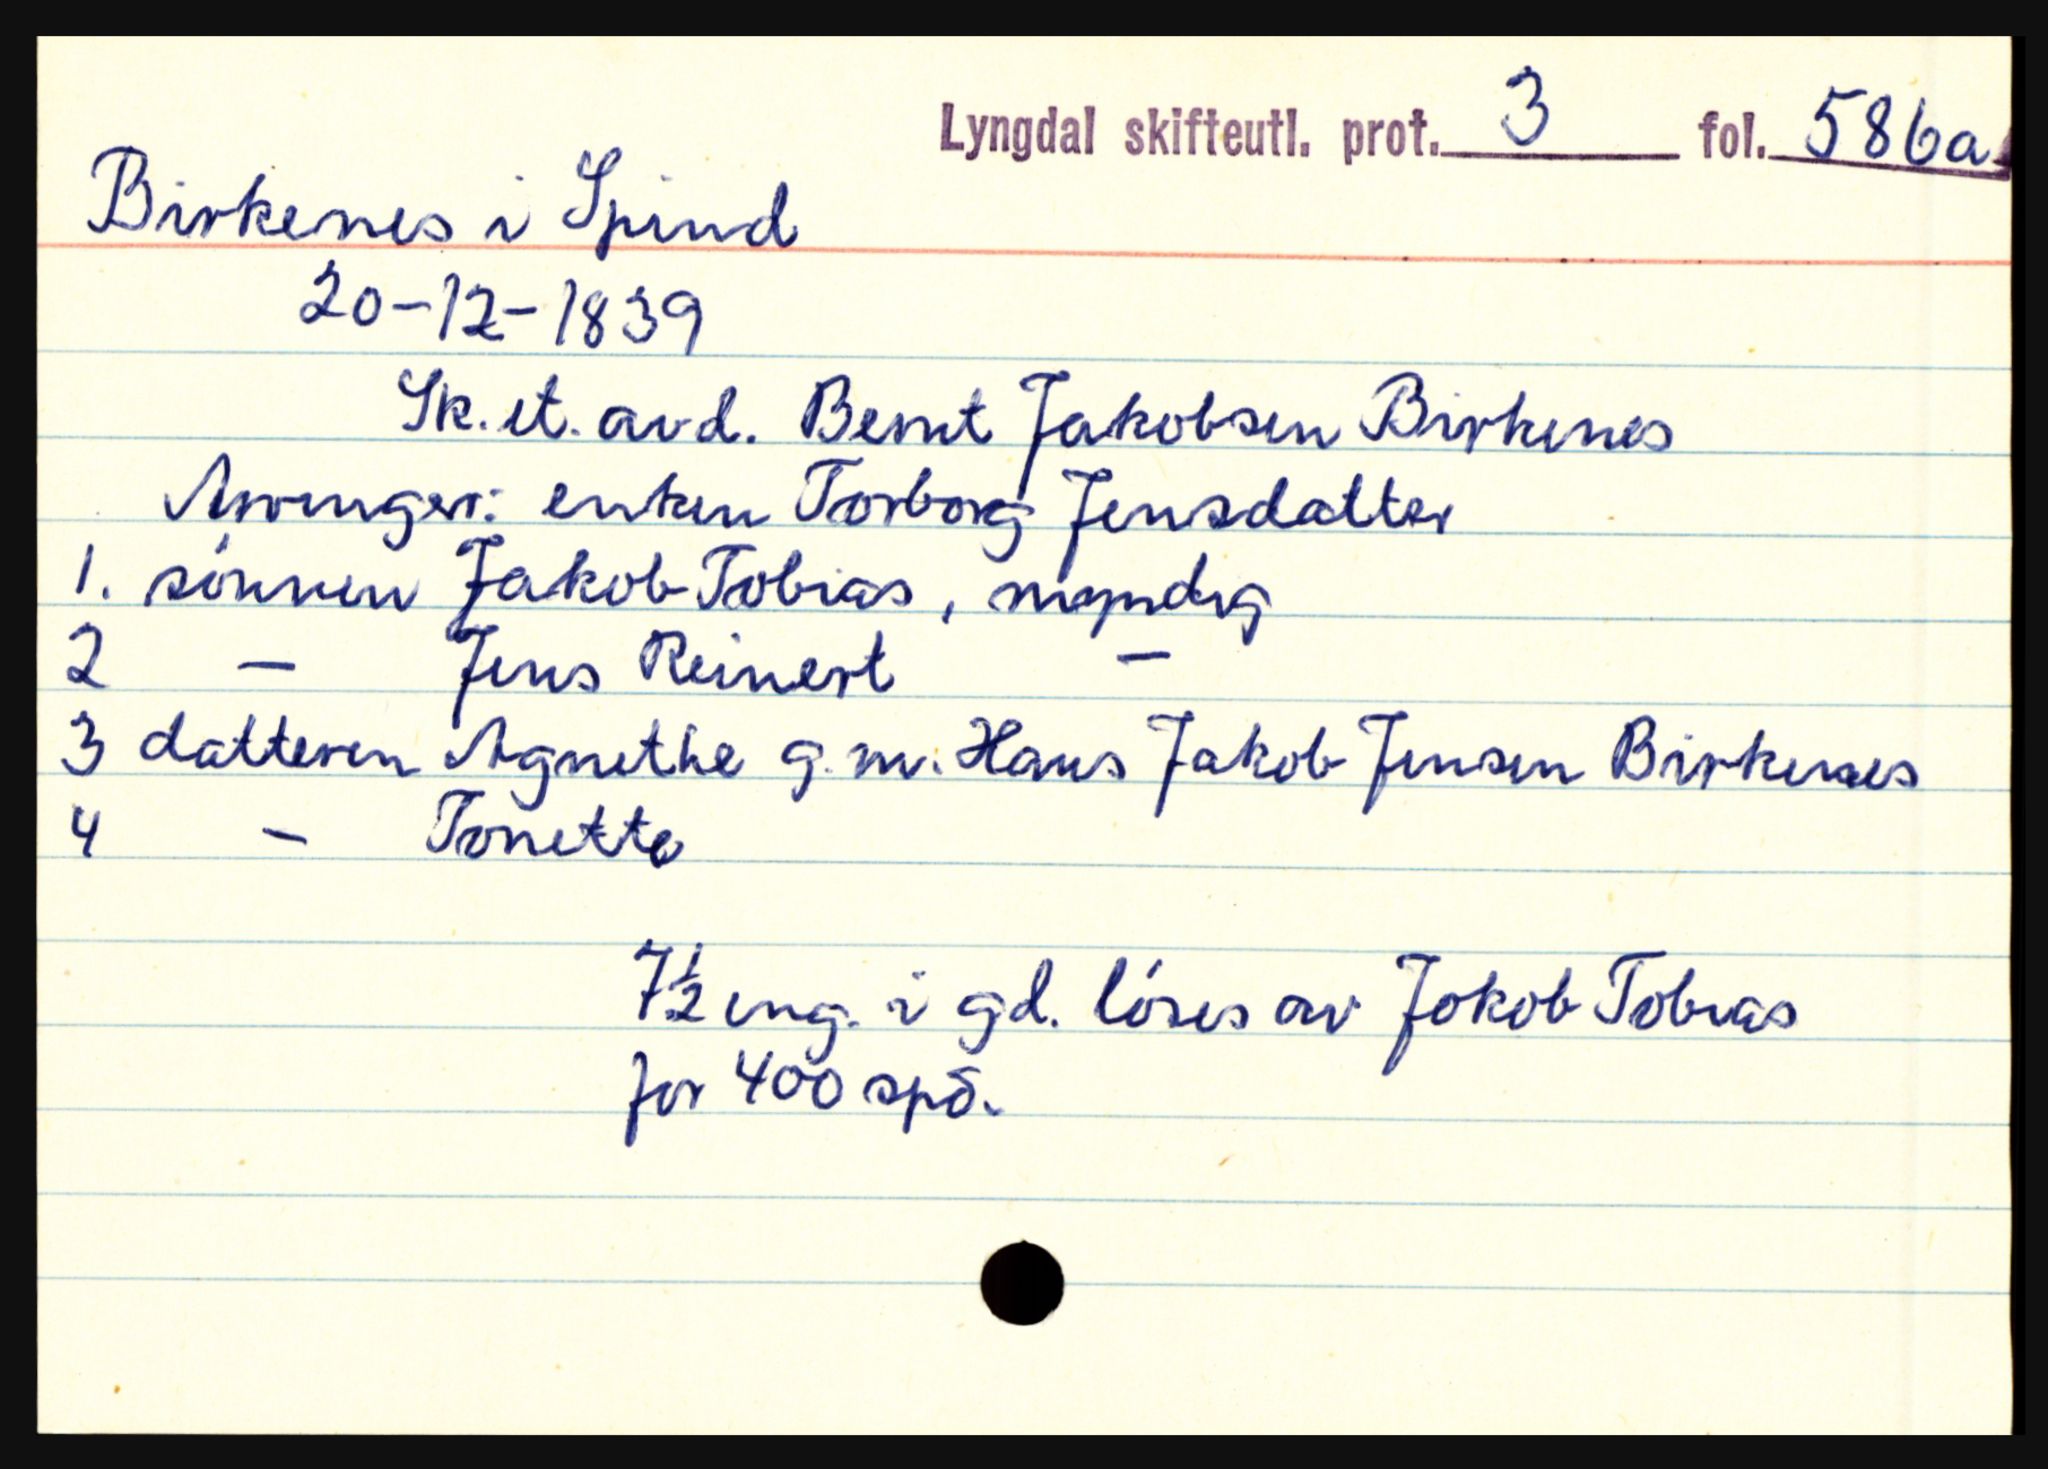 Lyngdal skifteutl. prot. 3 fol. 586a
Birkenes i Spind
20-12-1839
Sk. et. avd. Bernt Jakobsen Birkenes
Arvinger: enken Torborg Jensdatter
1. sønnen Jakob Tobias, myndig
2 — Jens Reinert —
3 datteren Agnethe g. m. Hans Jakob Jensen Birkenes
4 — Tonette
7½ eng. i gd. løses av Jokob Tobias
for 400 spd.